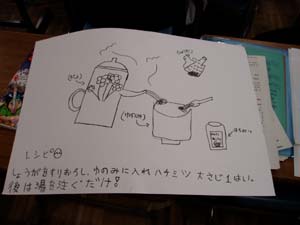 (ゆのみ)
はちみつ
レシピ
しょうがをすりおろし、ゆのみに入れ ハチミツ 大さじ1ぱい。
後は湯を注ぐだけ!!